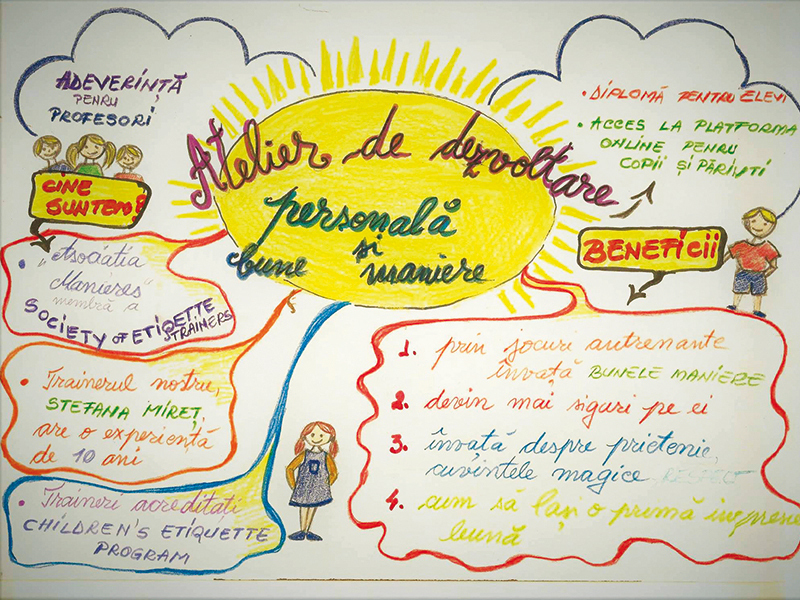 ADEVERINȚĂ
PENRU
PROFESORI
Atelier de dezvoltare
personală
și
bune maniere
• DIPLOMĂ PENTRU ELEVI
• ACCES LA PLATFORMA
ONLINE PENRU
COPII ȘI PĂRINȚI
CINE
SUNTEM?
• „Asociatia
Manieres”
membră a
SOCIETY OF ETIQETTE
TRAINERS
• Trainerul nostru,
STEFANA MIREȚ,
are o experiență
de 10 ani
• Traineri acreditați
CHILDREN'S ETIQUETTE
PROGRAM
BENEFICII
1. prin jocuri antrenante
învață BUNELE MANIERE
2. devin mai siguri pe ei
3. învață despre prietenie,
cuvintele magice, RESPECT
4. cum să lași o primă impresie
bună